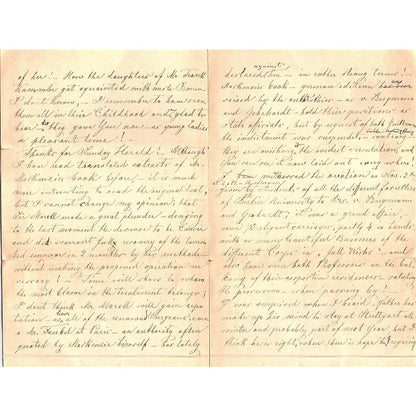 of her! - How the daughters of Mr Frank
Hammler got aquainted with
I don't know, - I remember to have seen
them all in their Childhood and glad to
hear they gave young Ladies
a pleasant time!
Thanks for Sunday Herald! Although
I have read translated extracts of Mr.
Mackenzie's book before - it is much
more interesting to read the original text,
but I cannot change my opinion; that
Sir Morell made a great blunder - denying
to the last moment the decease to be Cancer
and did warrant full recovery of the lamen-
ted emperor in 2 months by his methode -
without making the proposed operation ne-
cessary! - Some will share to reduce
the most blame in the treatment between;
I don't think Mr. Morell will gain repu-
tation - all of the renowned Surgeons, even
a Mr. at Paris - an authority often
quoted by Mackenzie himself - has lately
against
declared him - in rather strong terms!
Mackenzies book - german edition had been
seized by the authorities - as v. Bergmann
and Gerhardt - hold their positions as
state officials, but by request of both gentlemen
the indictment was suspended, - contrary
they are wishing the widest circulation, and
you can see it now laid out every where!
You mentioned the ovation on Nov. 2th
given by Students - of all the different faculties
of Berlin University to Drs. v. Bergmann
and Gerhardt; it was a grand affair,
over elegant carriages, partly 4 in hand
with so many beautiful Banners of the
different Corps in full Wichs! - and
also have seen both Professors on the bal-
cony of their respective residences, saluting
the procession when passing by! -
I was surprised when I heard father has
made up his mind to stay at Stuttgart all
winter and probably part of next Year, but I
think he is right, when he is hoping